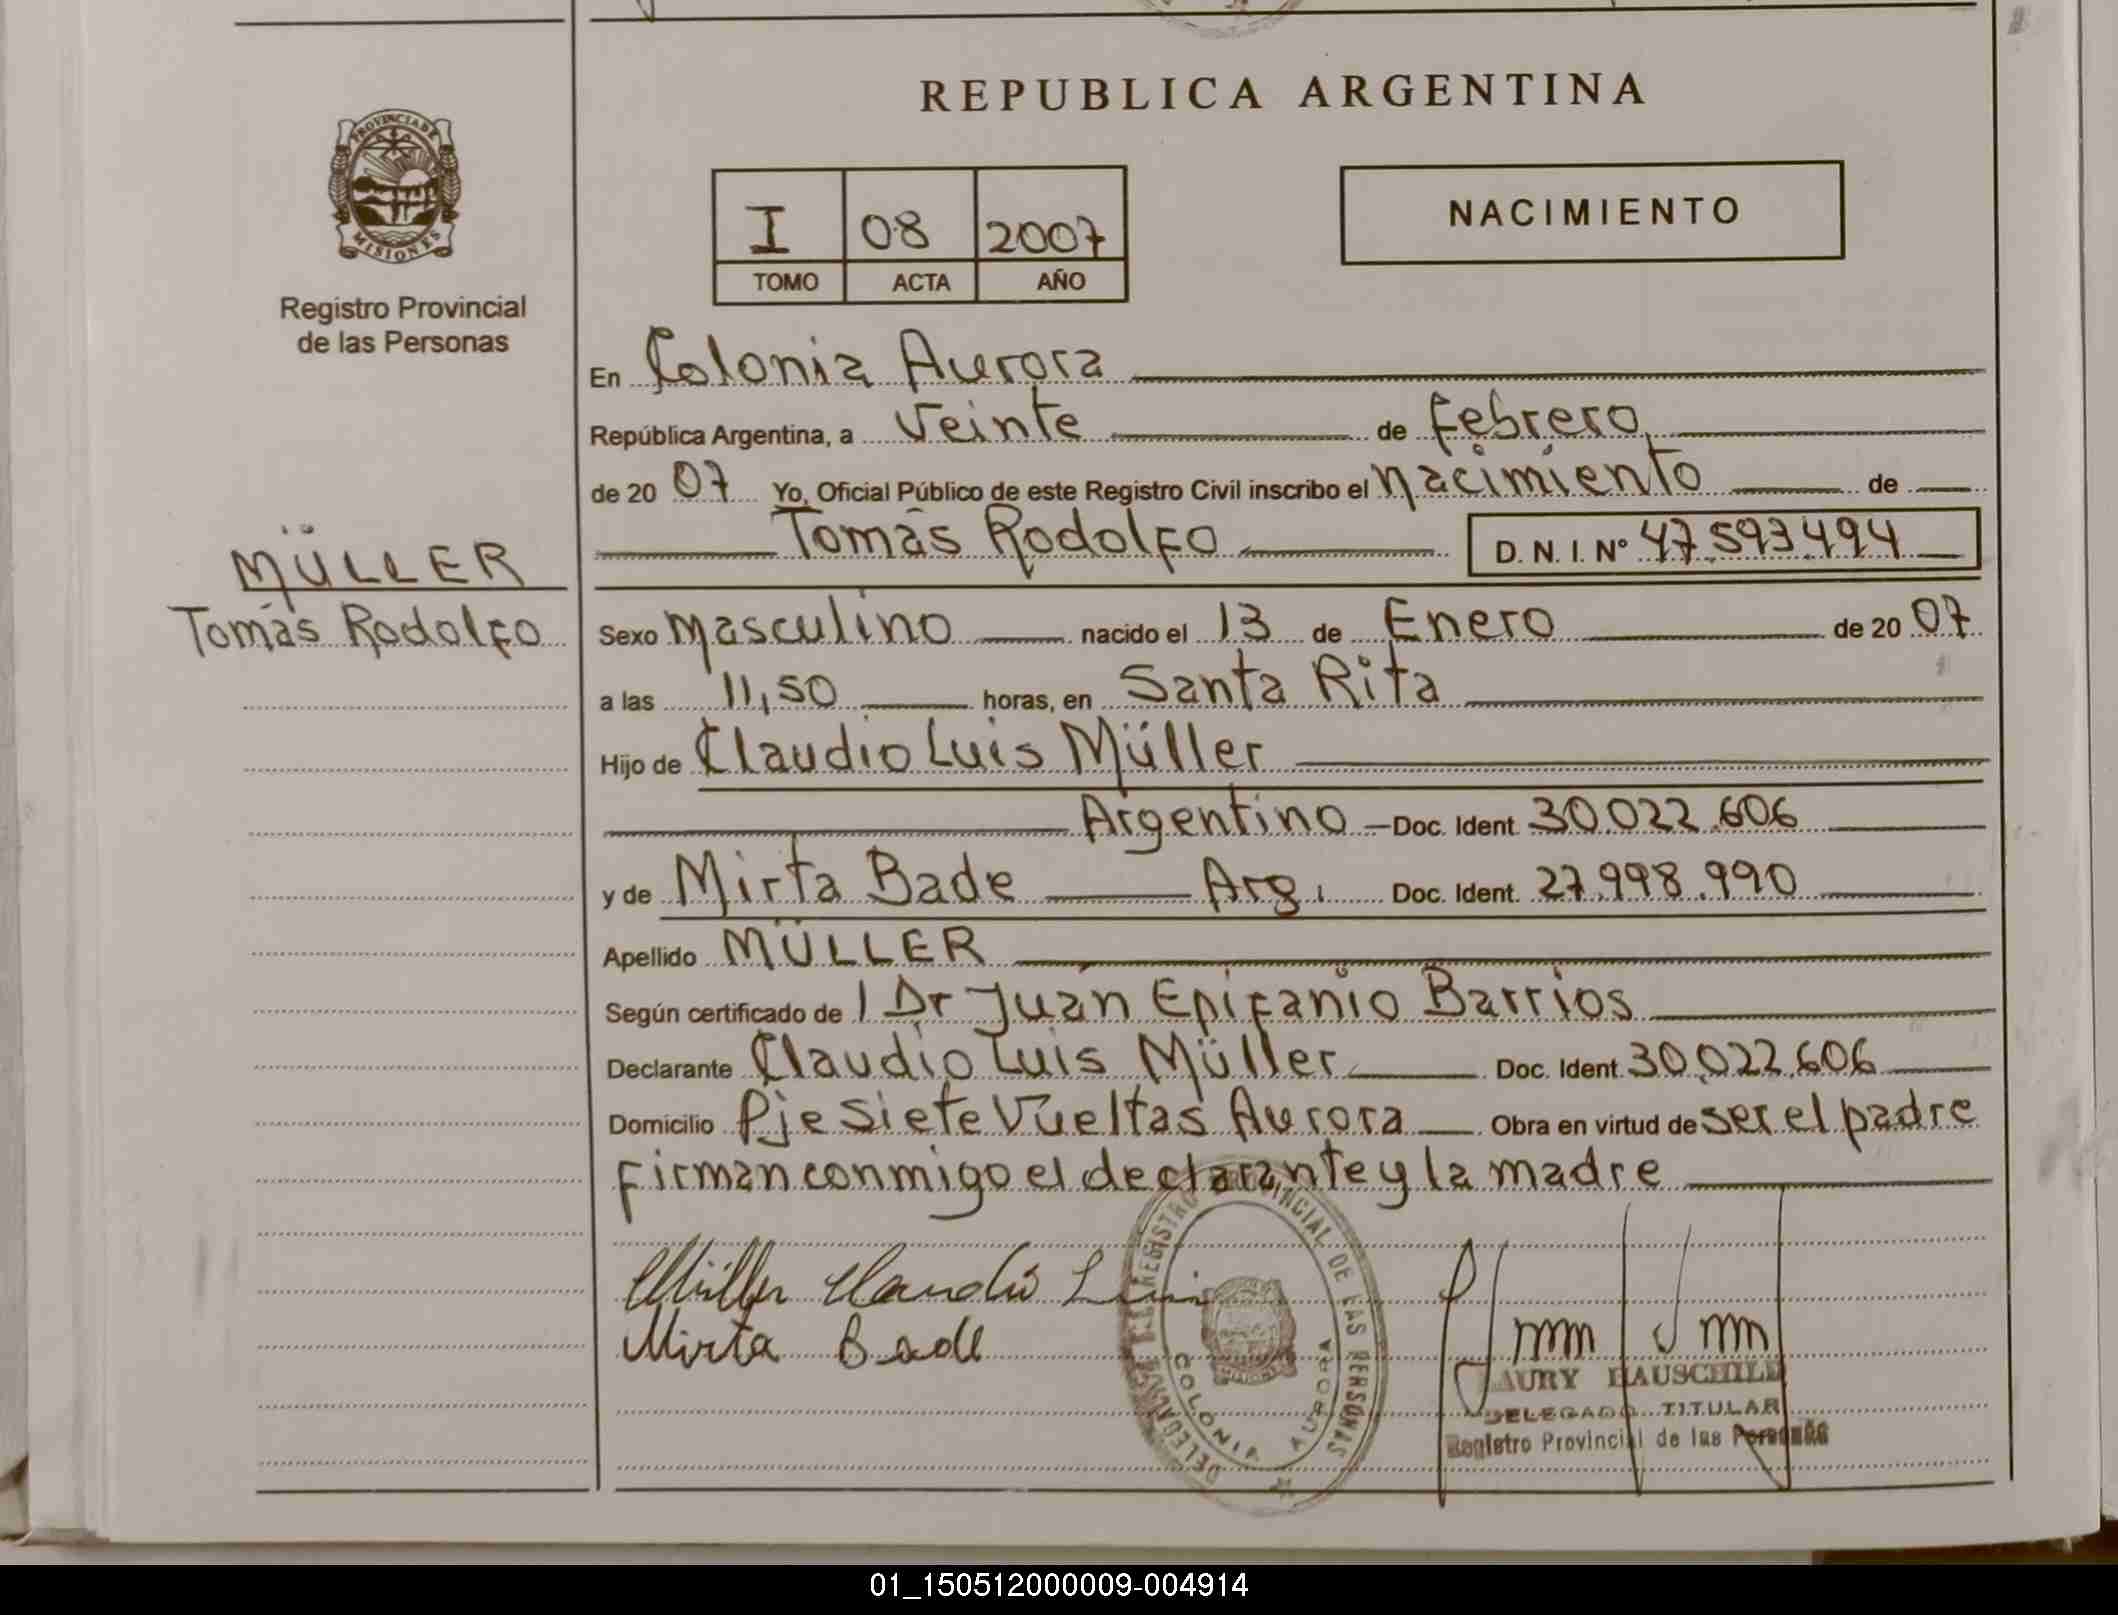 REPUBLICA ARGENTINA
PROVINCIA DE
MISIONES
Registro Provincial
de las Personas
I 08 2007
TOMO ACTA AÑO
NACIMIENTO
En Colonia Aurora
República Argentina, a Veinte de febrero
de 20 07 Yo, Oficial Público de este Registro Civil inscribo el nacimiento de
Tomás Rodolfo D. N. I. Nº 47.593.494
MÜLLER
Tomás Rodolfo
Sexo masculino nacido el 13 de Enero de 20 07
a las 11,50 horas, en Santa Rita
Hijo de Claudio Luis Müller
Argentino Doc. Ident. 30.022.606
y de Mirta Bade Arg. Doc. Ident. 27.998.990
Apellido MÜLLER
Según certificado de l Dr Juan Epifanio Barrios
Declarante Claudio Luis Müller Doc. Ident. 30.022.606
Domicilio Pje Siete Vueltas Aurora Obra en virtud de ser el padre
firman conmigo el declarante y la madre
Müller Claudio Luis
Mirta Bade
REGISTRO PROVINCIAL DE LAS PERSONAS
COLONIA AURORA
DELEGADO TITULAR
Registro Provincial de las Personas
01_150512000009-004914